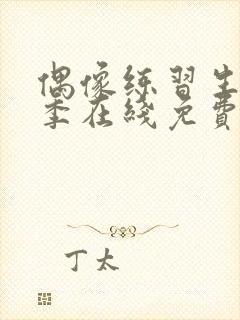 偶像练习生
季在线免费
丁太